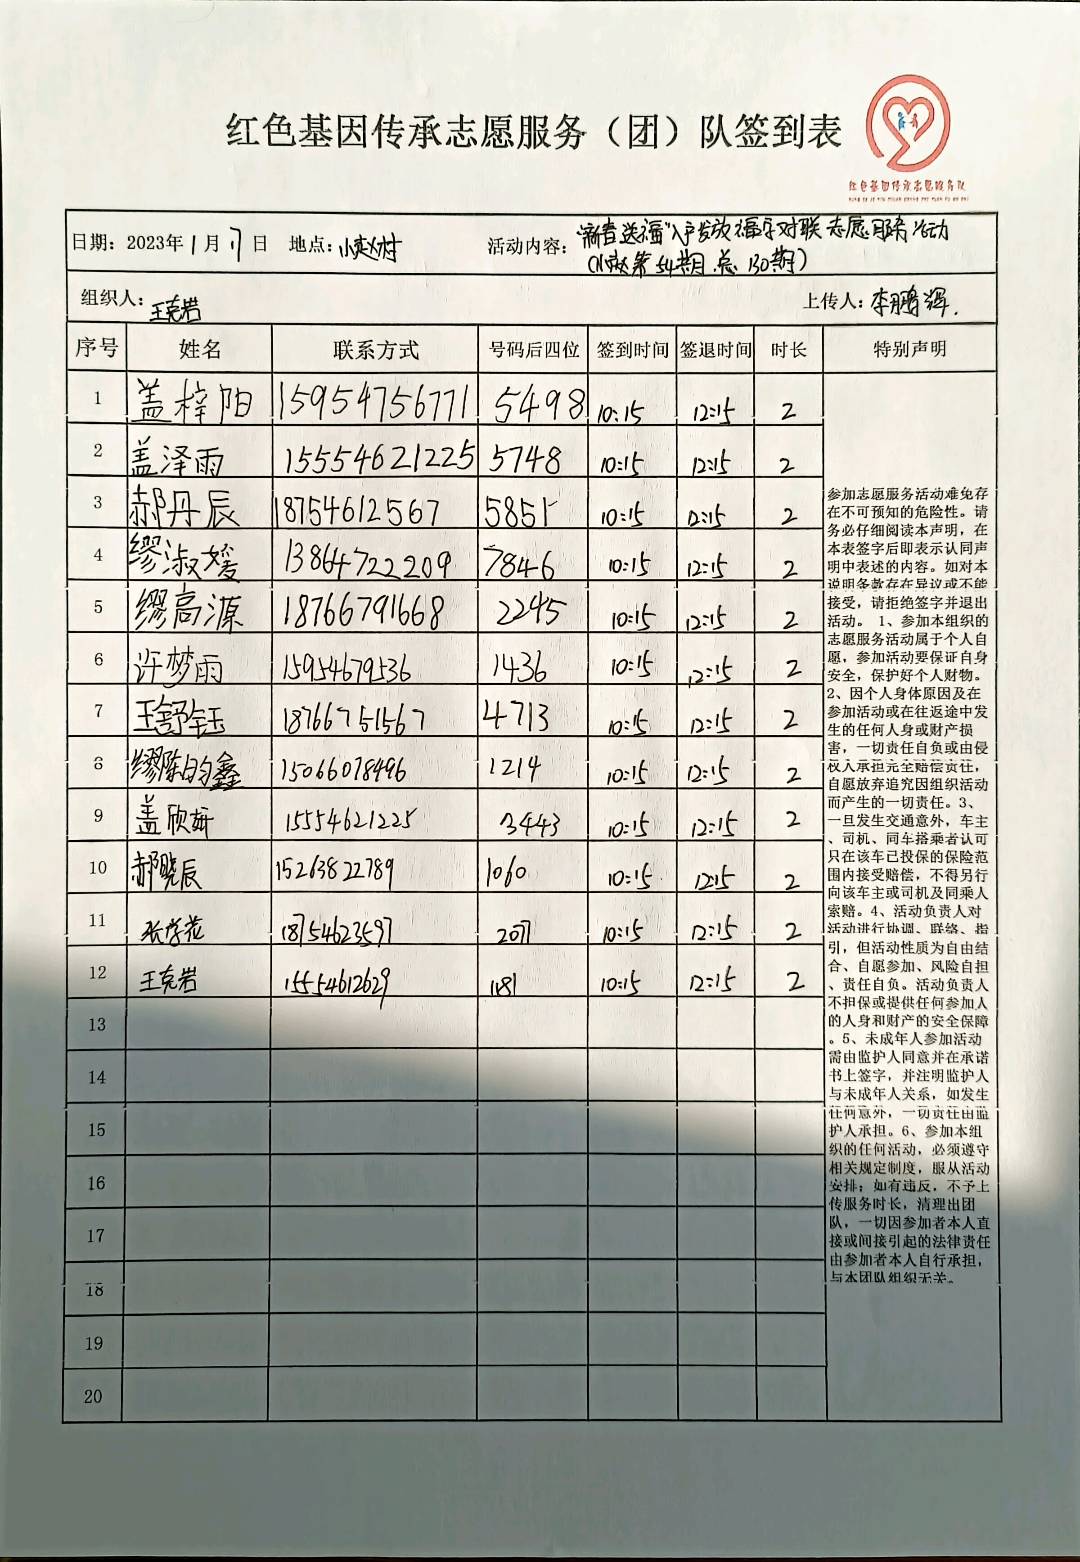 红色基因传承志愿服务（团）队签到表
红色基因传承志愿服务队
日期：2023年1月17日 地点：小赵村 活动内容：“新春送福”入户发放福字对联志愿服务活动
（小赵第54期.总130期）
组织人：王克岩 上传人：李鹏辉.
序号 姓名 联系方式 号码后四位 签到时间 签退时间 时长 特别声明
1 盖梓阳 15954756771 5498 10:15 12:15 2
2 盖泽雨 15554621225 5748 10:15 12:15 2
3 郝丹辰 18754612567 5851 10:15 12:15 2
4 缪淑媛 13864722209 7846 10:15 12:15 2
5 缪高源 18766791668 2245 10:15 12:15 2
6 许梦雨 15954679536 1436 10:15 12:15 2
7 王舒钰 18766751567 4713 10:15 12:15 2
8 缪陈昀鑫 15066078496 1214 10:15 12:15 2
9 盖欣妍 15554621225 3443 10:15 12:15 2
10 郝晓辰 15263822789 1060 10:15 12:15 2
11 张学花 18754623597 2071 10:15 12:15 2
12 王克岩 15554612629 1181 10:15 12:15 2
13
14
15
16
17
18
19
20
参加志愿服务活动难免存
在不可预知的危险性。请
务必仔细阅读本声明，在
本表签字后即表示认同声
明中表述的内容。如对本
说明条款存在异议或不能
接受，请拒绝签字并退出
活动。 1、参加本组织的
志愿服务活动属于个人自
愿，参加活动要保证自身
安全，保护好个人财物。
2、因个人身体原因及在
参加活动或在往返途中发
生的任何人身或财产损
害，一切责任自负或由侵
权人承担完全赔偿责任，
自愿放弃追究因组织活动
而产生的一切责任。3、
一旦发生交通意外，车主
、司机、同车搭乘者认可
只在该车已投保的保险范
围内接受赔偿，不得另行
向该车主或司机及同乘人
索赔。4、活动负责人对
活动进行协调、联络、指
引，但活动性质为自由结
合、自愿参加、风险自担
、责任自负。活动负责人
不担保或提供任何参加人
的人身和财产的安全保障
。5、未成年人参加活动
需由监护人同意并在承诺
书上签字，并注明监护人
与未成年人关系，如发生
任何意外，一切责任由监
护人承担。6、参加本组
织的任何活动，必须遵守
相关规定制度，服从活动
安排；如有违反，不予上
传服务时长，清理出团
队，一切因参加者本人直
接或间接引起的法律责任
由参加者本人自行承担，
与本团队组织无关。